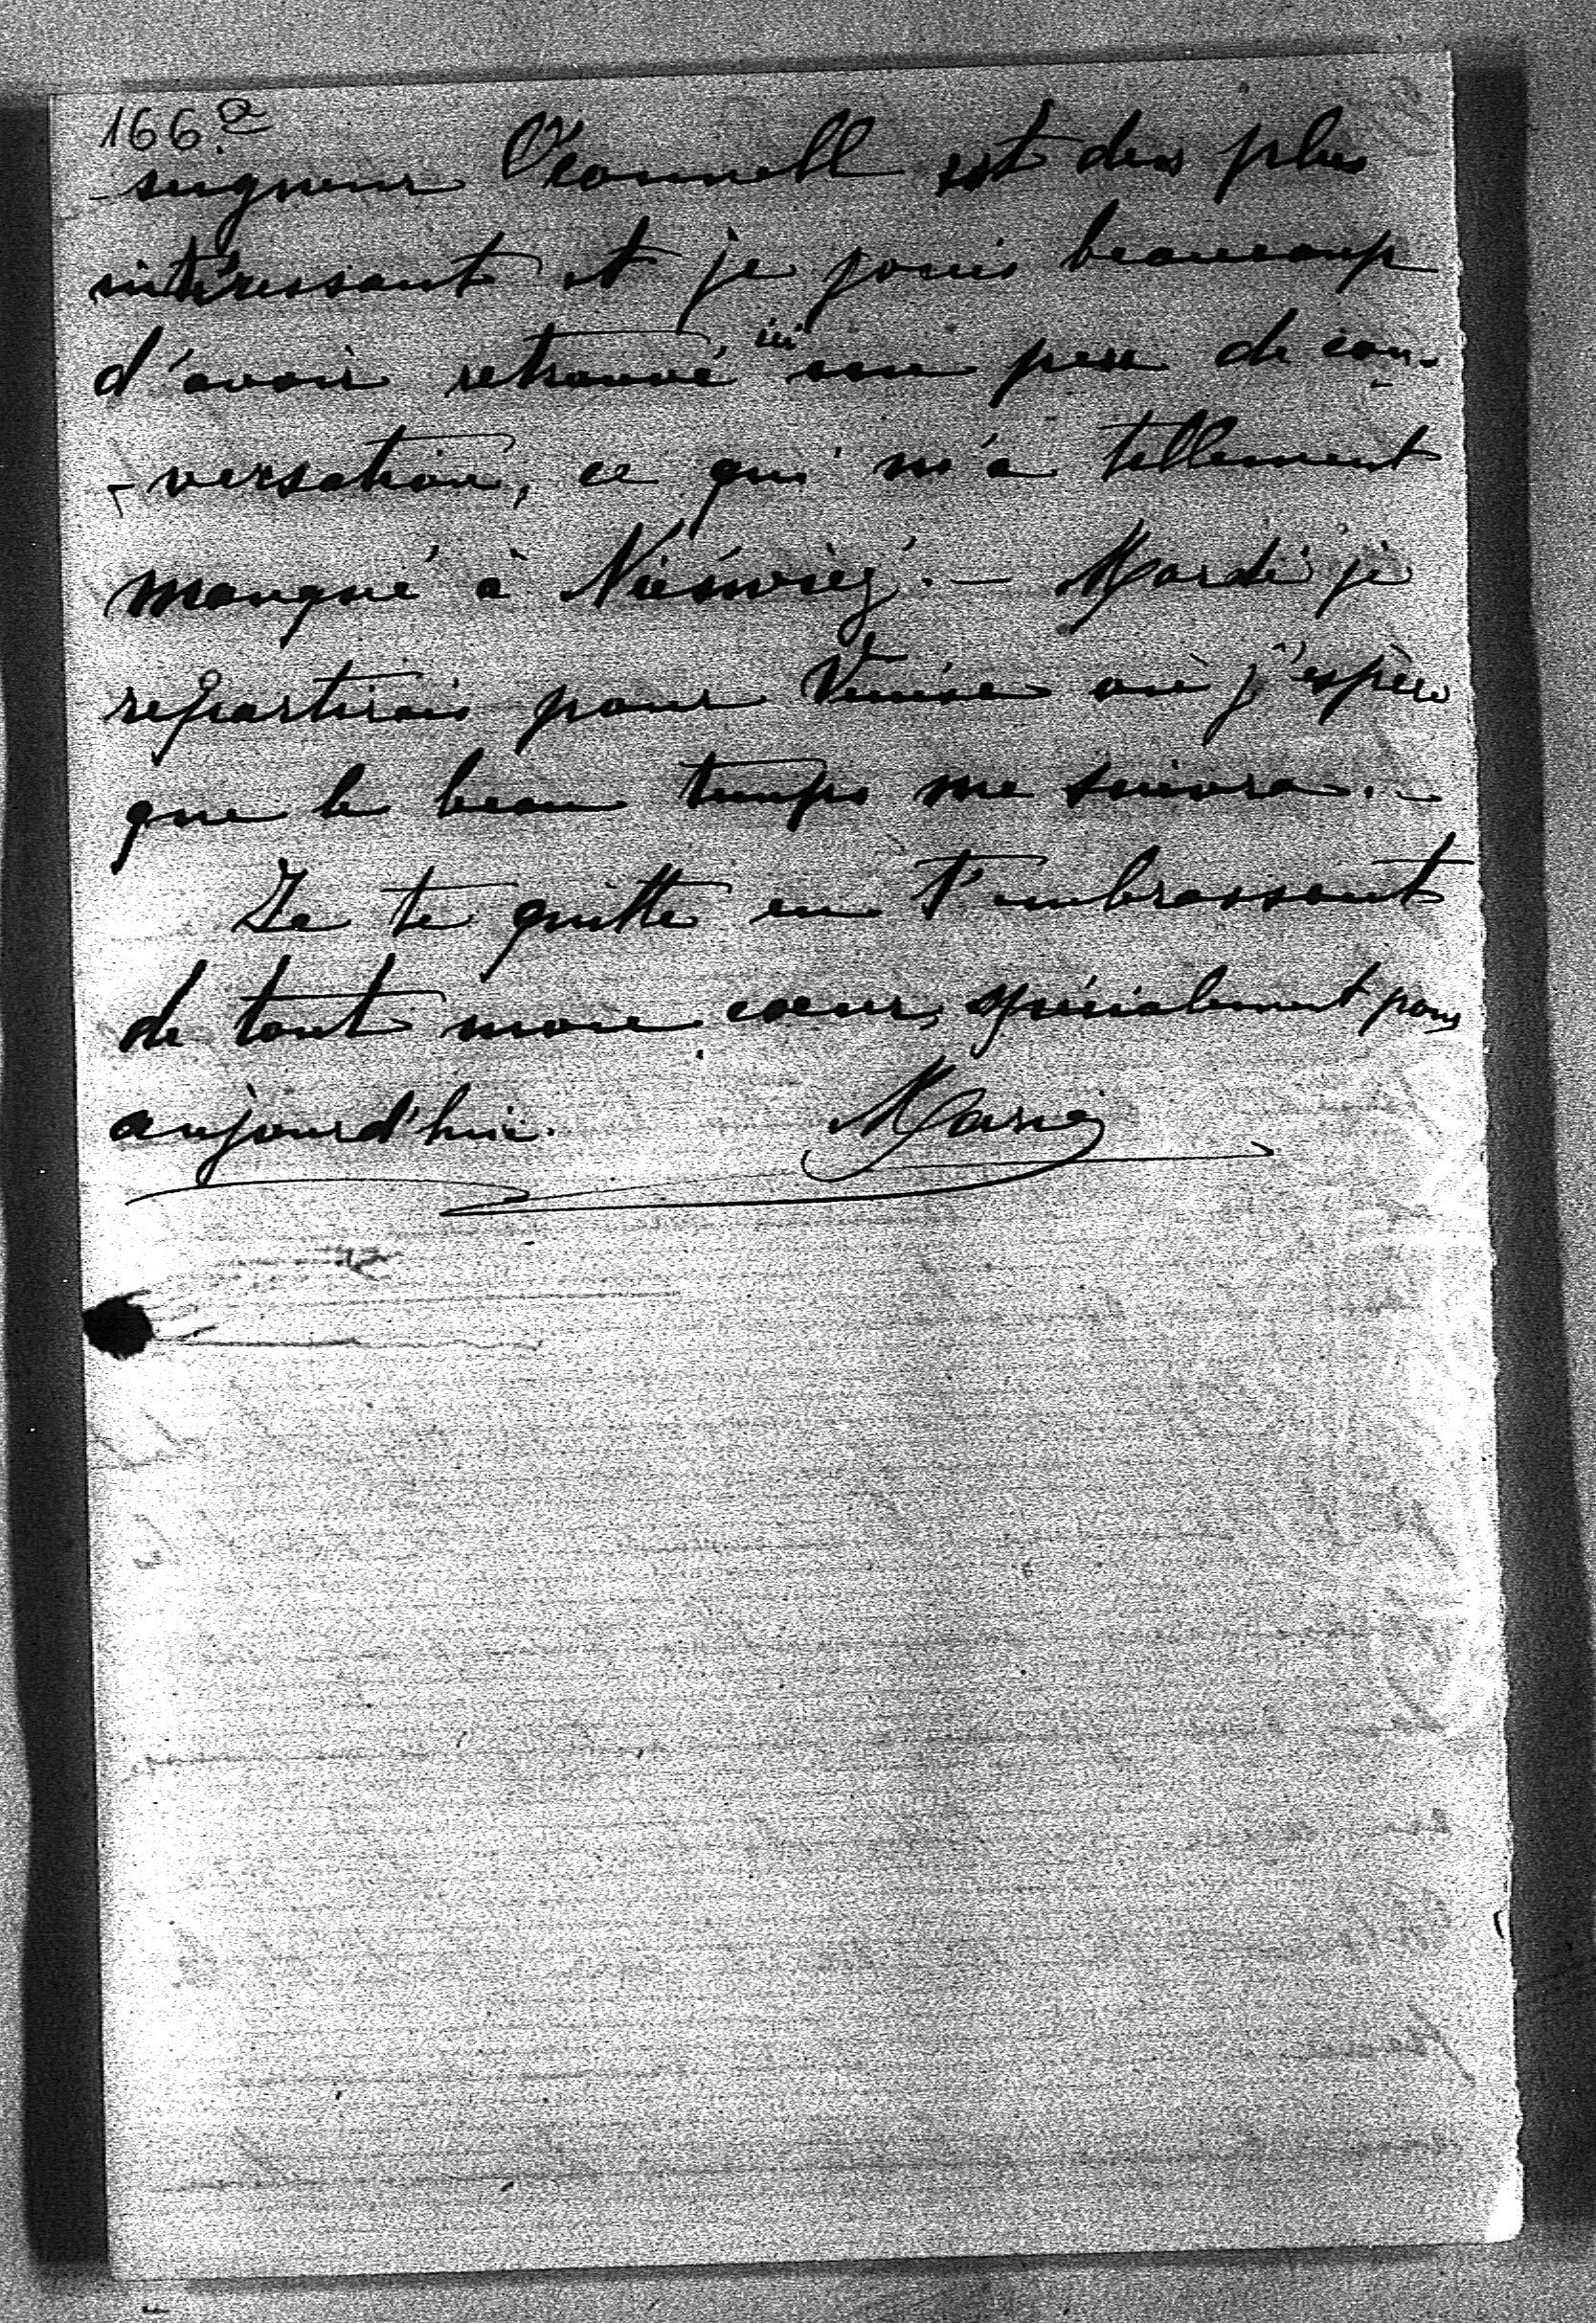 166.a
-seigneur O'Connell est des plus
intéressant et je jouis beaucoup
d'avoir retrouvé ici un peu de con-
-versation, ce qui m'a tellement
manqué à Nieśwież. — Mardi je
repartirais pour Venise où j'espère
que le beau temps me suivra. –
Je te quitte en t'embrassant
de tout mon coeur, spécialement pour
aujourd'hui. Marie